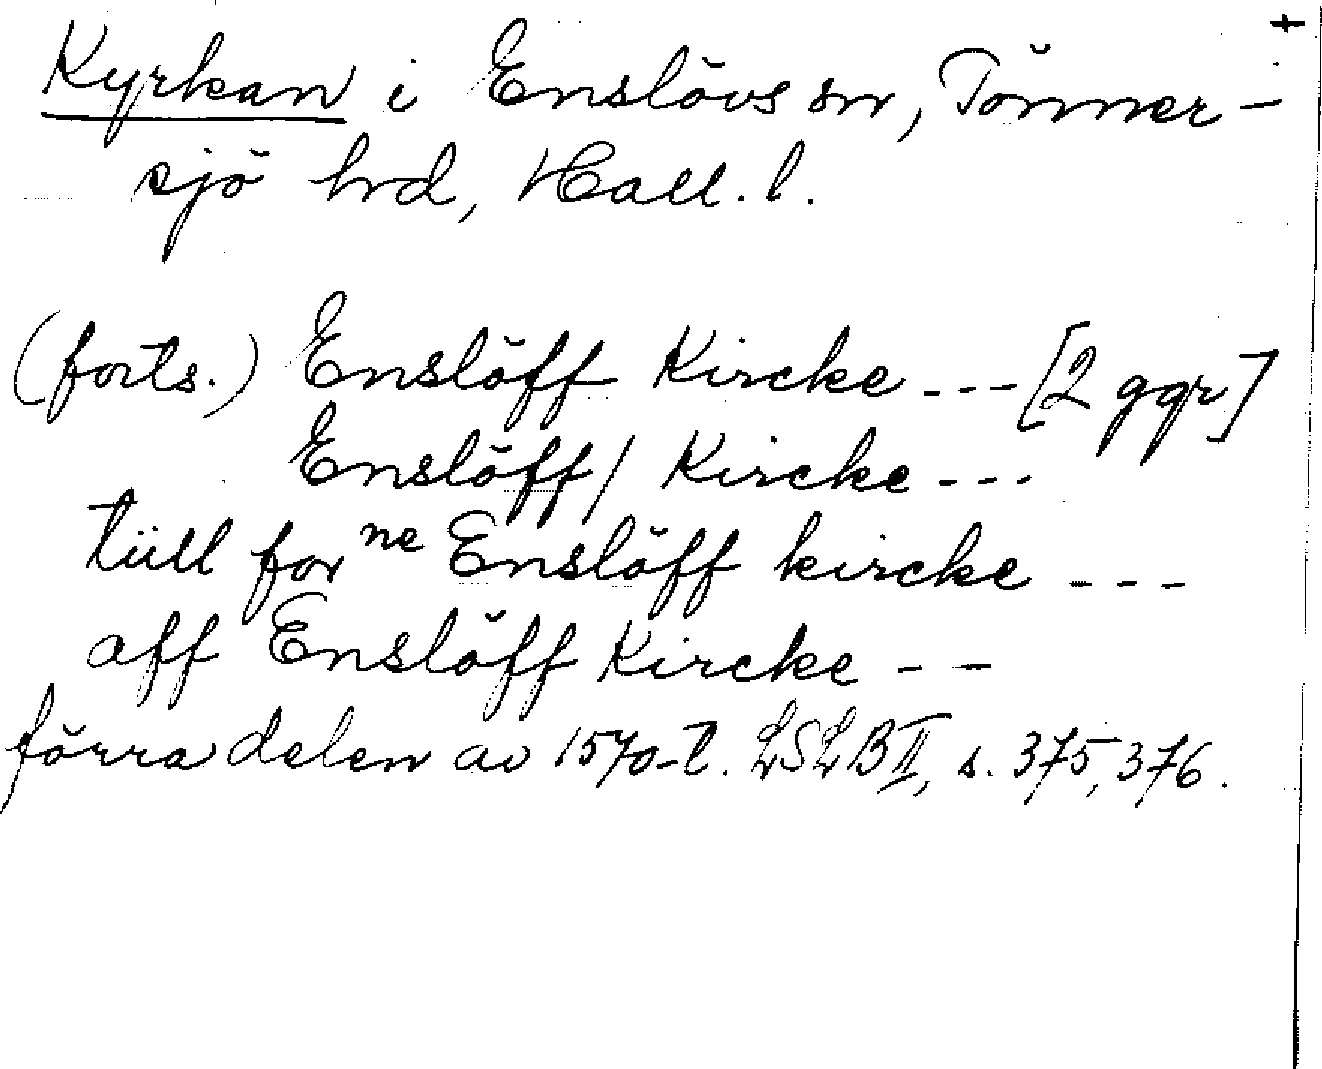 Kyrkan i Enslövs sn, Tönner-
sjö hrd, Hall. l.
(forts.) Enslöff Kircke --- [2 ggr]
Enslöff/ Kircke ---
tüll for ne Enslöff kircke ---
aff Enslöff Kircke --
förra delen av 1570-t. LSLB II, s. 375, 376.